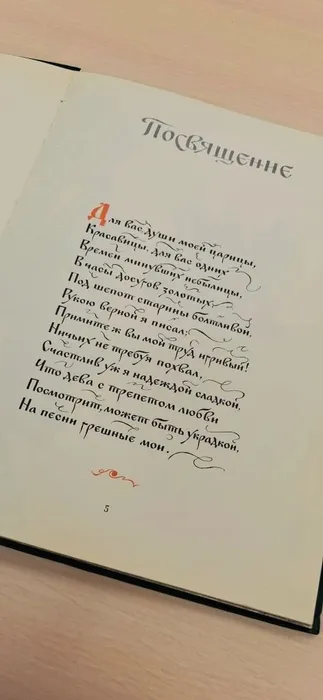 Посвящение
Для вас, души моей царицы,
Красавицы, для вас одних
Времен минувших небылицы,
В часы досугов золотых,
Под шепот старины болтливой,
Рукою верной я писал;
Примите ж вы мой труд игривый!
Ничьих не требуя похвал,
Счастлив уж я надеждой сладкой,
Что дева с трепетом любви
Посмотрит, может быть украдкой,
На песни грешные мои.
5